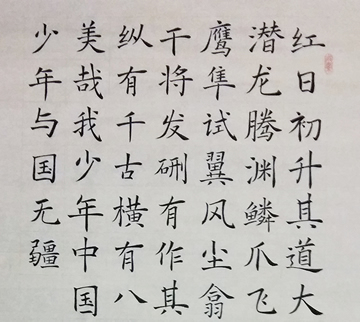 红日初升其道大
潜龙腾渊鳞爪飞
鹰隼试翼风尘翕
干将发硎有作其
纵有千古横有八
美哉我少年中国
少年与国无疆